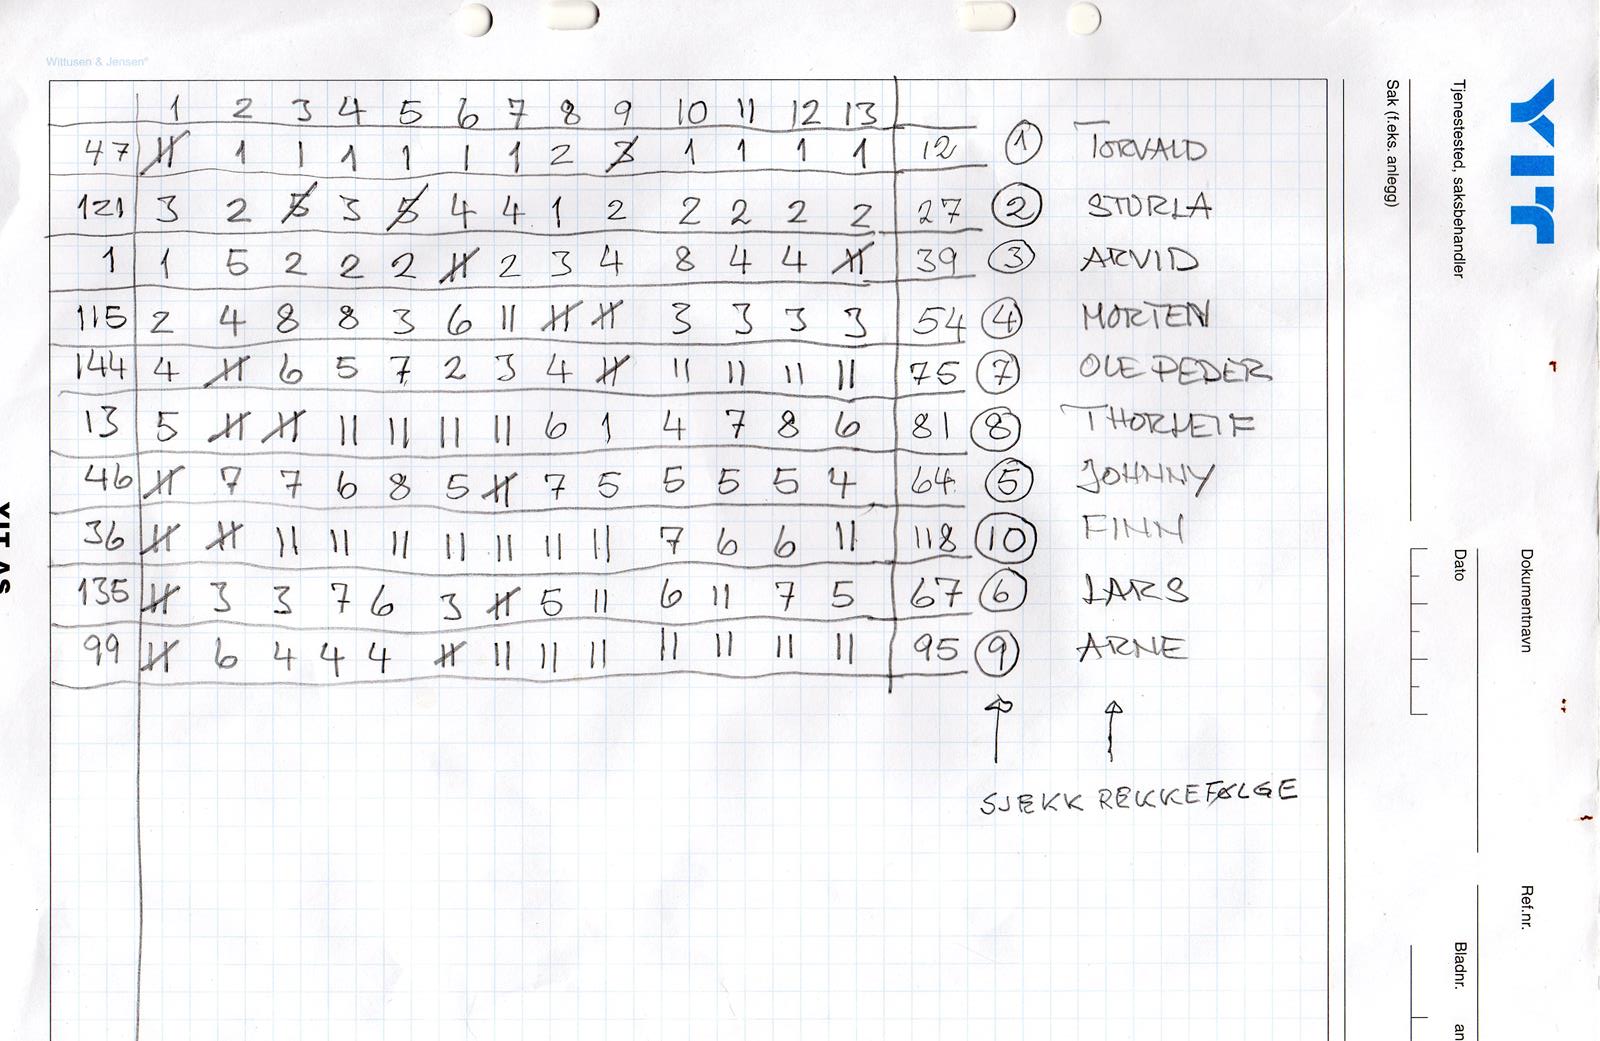 Wittusen & Jensen®
1 2 3 4 5 6 7 8 9 10 11 12 13
47 11 1 1 1 1 1 1 2 3 1 1 1 1 12 1 TORVALD
121 3 2 5 3 5 4 4 1 2 2 2 2 2 27 2 STURLA
1 1 5 2 2 2 11 2 3 4 8 4 4 11 39 3 ARVID
115 2 4 8 8 3 6 11 11 11 3 3 3 3 54 4 MORTEN
144 4 11 6 5 7 2 3 4 11 11 11 11 11 75 7 OLE PEDER
13 5 11 11 11 11 11 11 6 1 4 7 8 6 81 8 THORLEIF
46 11 7 7 6 8 5 11 7 5 5 5 5 4 64 5 JOHNNY
36 11 11 11 11 11 11 11 11 11 7 6 6 11 118 10 FINN
135 11 3 3 7 6 3 11 5 11 6 11 7 5 67 6 LARS
99 11 6 4 4 4 11 11 11 11 11 11 11 11 95 9 ARNE
SJEKK REKKEFØLGE
YIT
Tjenestested, saksbehandler
Sak (f.eks. anlegg)
Dokumentnavn
Dato
Ref.nr.
Bladnr.
an
YIT AS